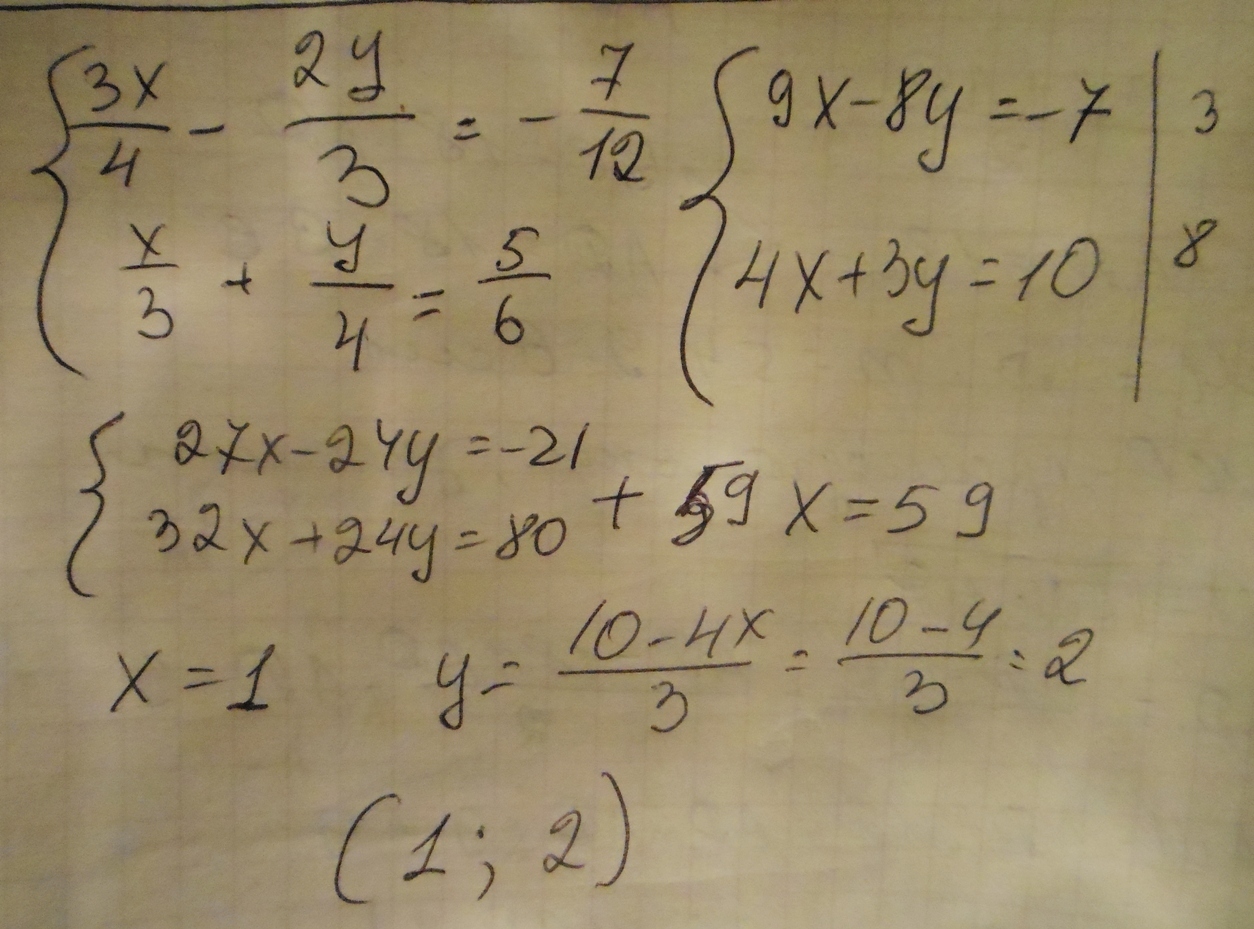 { 3x/4 - 2y/3 = - 7/12 { 9x-8y=-7 | 3
x/3 + y/4 = 5/6 4x+3y=10 | 8
{ 27x-24y=-21
32x+24y=80 + 59x=59
x=1 y= (10-4x)/3 = (10-4)/3 = 2
(1; 2)